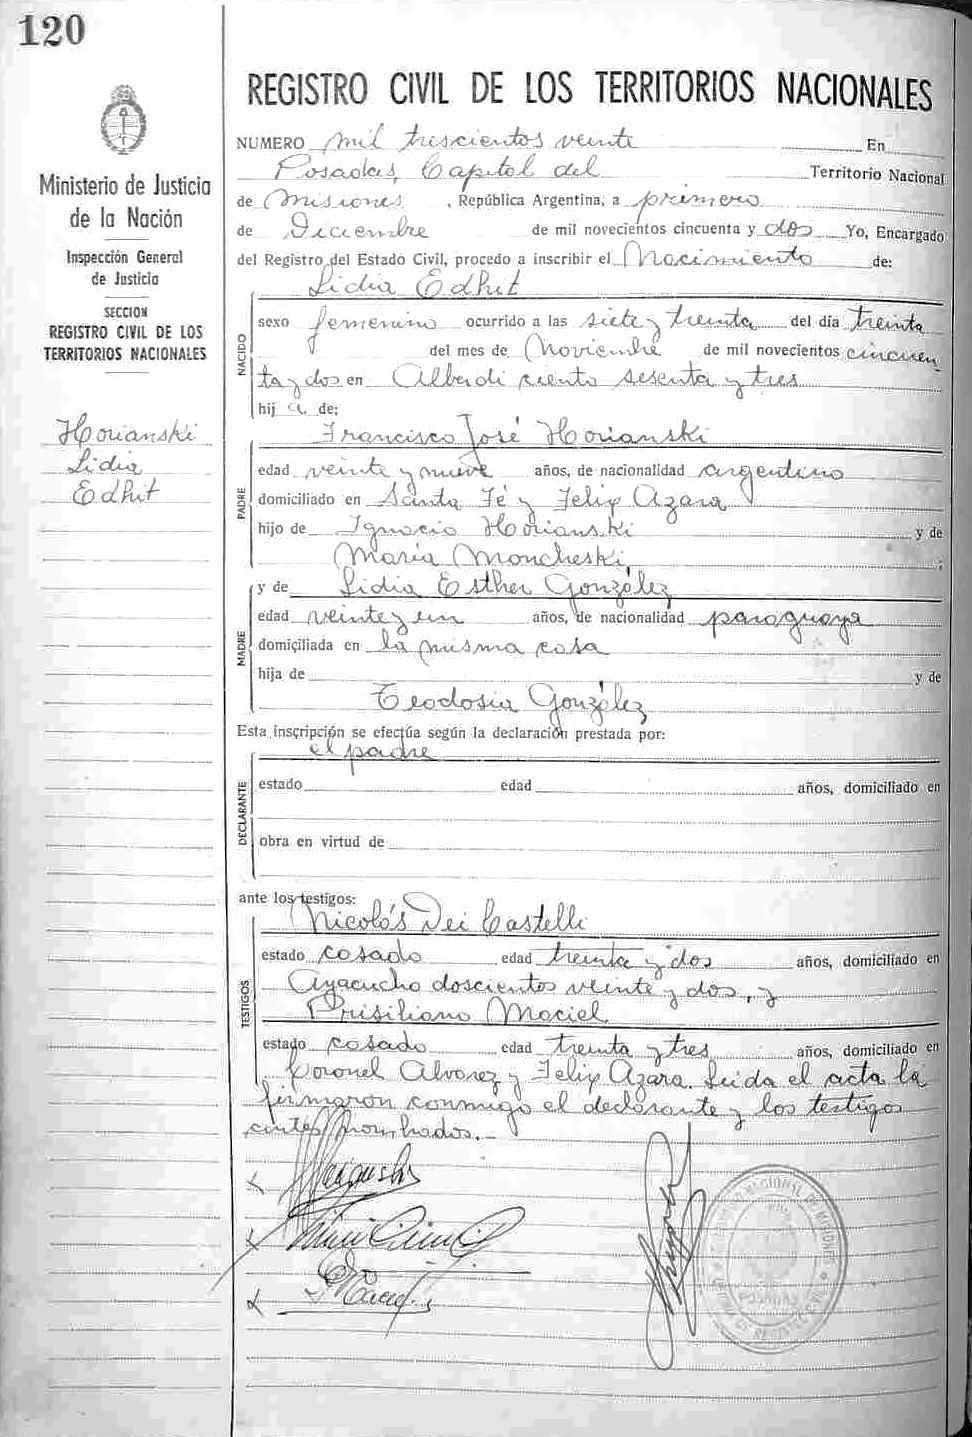 120
Ministerio de Justicia
de la Nación
Inspección General
de Justicia
SECCION
REGISTRO CIVIL DE LOS
TERRITORIOS NACIONALES
Horianski
Lidia
Edhit
REGISTRO CIVIL DE LOS TERRITORIOS NACIONALES
NUMERO mil trescientos veinte En
Posadas, Capital del Territorio Nacional
de Misiones, República Argentina, a primero
de Diciembre de mil novecientos cincuenta y dos Yo, Encargado
del Registro del Estado Civil, procedo a inscribir el Nacimiento de:
Lidia Edhit
NACIDO
sexo femenino ocurrido a las siete y treinta del día treinta
del mes de Noviembre de mil novecientos cincuen
ta y dos en Alberdi ciento sesenta y tres
hij a de:
Francisco José Horianski
PADRE
edad veinte y nueve años, de nacionalidad argentino
domiciliado en Santa Fé y Felix Azara
hijo de Ignacio Horianski y de
María Moncheski,
y de Lidia Esther González
MADRE
edad veinte y un años, de nacionalidad paraguaya
domiciliada en la misma casa
hija de y de
Teodosia González
Esta inscripción se efectúa según la declaración prestada por:
el padre
DECLARANTE
estado edad años, domiciliado en
obra en virtud de
ante los testigos:
Nicolás Dei Castelli
TESTIGOS
estado casado edad treinta y dos años, domiciliado en
Ayacucho doscientos veinte y dos, y
Prisiliano Maciel
estado casado edad treinta y tres años, domiciliado en
Coronel Alvarez y Felix Azara. Leida el acta la
firmaron conmigo el declarante y los testigos
antes nombrados.-